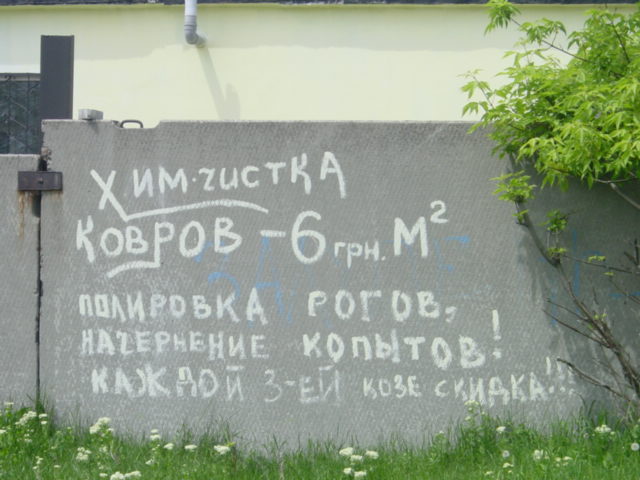 Хим.чистка
Ковров - 6 грн. м²
полировка рогов,
начернение копытов!
каждой 3-ей козе скидка!!!